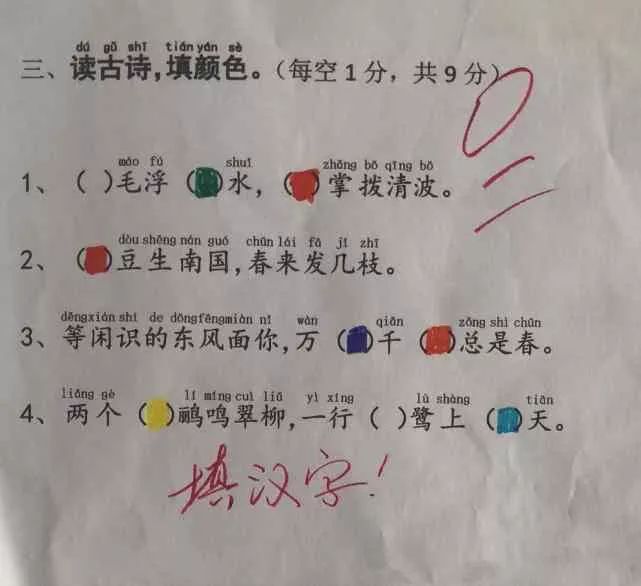 dú gǔ shī tián yán sè
三、读古诗,填颜色。(每空1分，共9分)
0
máo fú shuǐ zhǎng bō qīng bō
1、( )毛浮( )水，( )掌拨清波。
dòu shēng nán guó chūn lái fā jǐ zhī
2、( )豆生南国,春来发几枝。
děng xián shí de dōng fēng miàn nǐ wàn qiān zǒng shì chūn
3、等闲识的东风面你,万( )千( )总是春。
liǎng gè lí míng cuì liǔ yì xíng lù shàng tiān
4、两个( )鹂鸣翠柳,一行( )鹭上( )天。
填汉字!